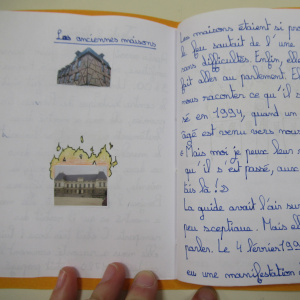 Les anciennes maisons
Les maisons étaient si pro
le feu sautait de l'une
sans difficultés. Enfin, elle
fait aller au parlement. El
nous raconter ce qu'il s
sé en 1994, quand un
âgé est venu vers nous
"Mais moi je peux leur
qu'il s'est passé, aux
tais là !"
La guide avait l'air sur
peu sceptique. Mais el
parler. Le 4 février 199
eu une manifestation